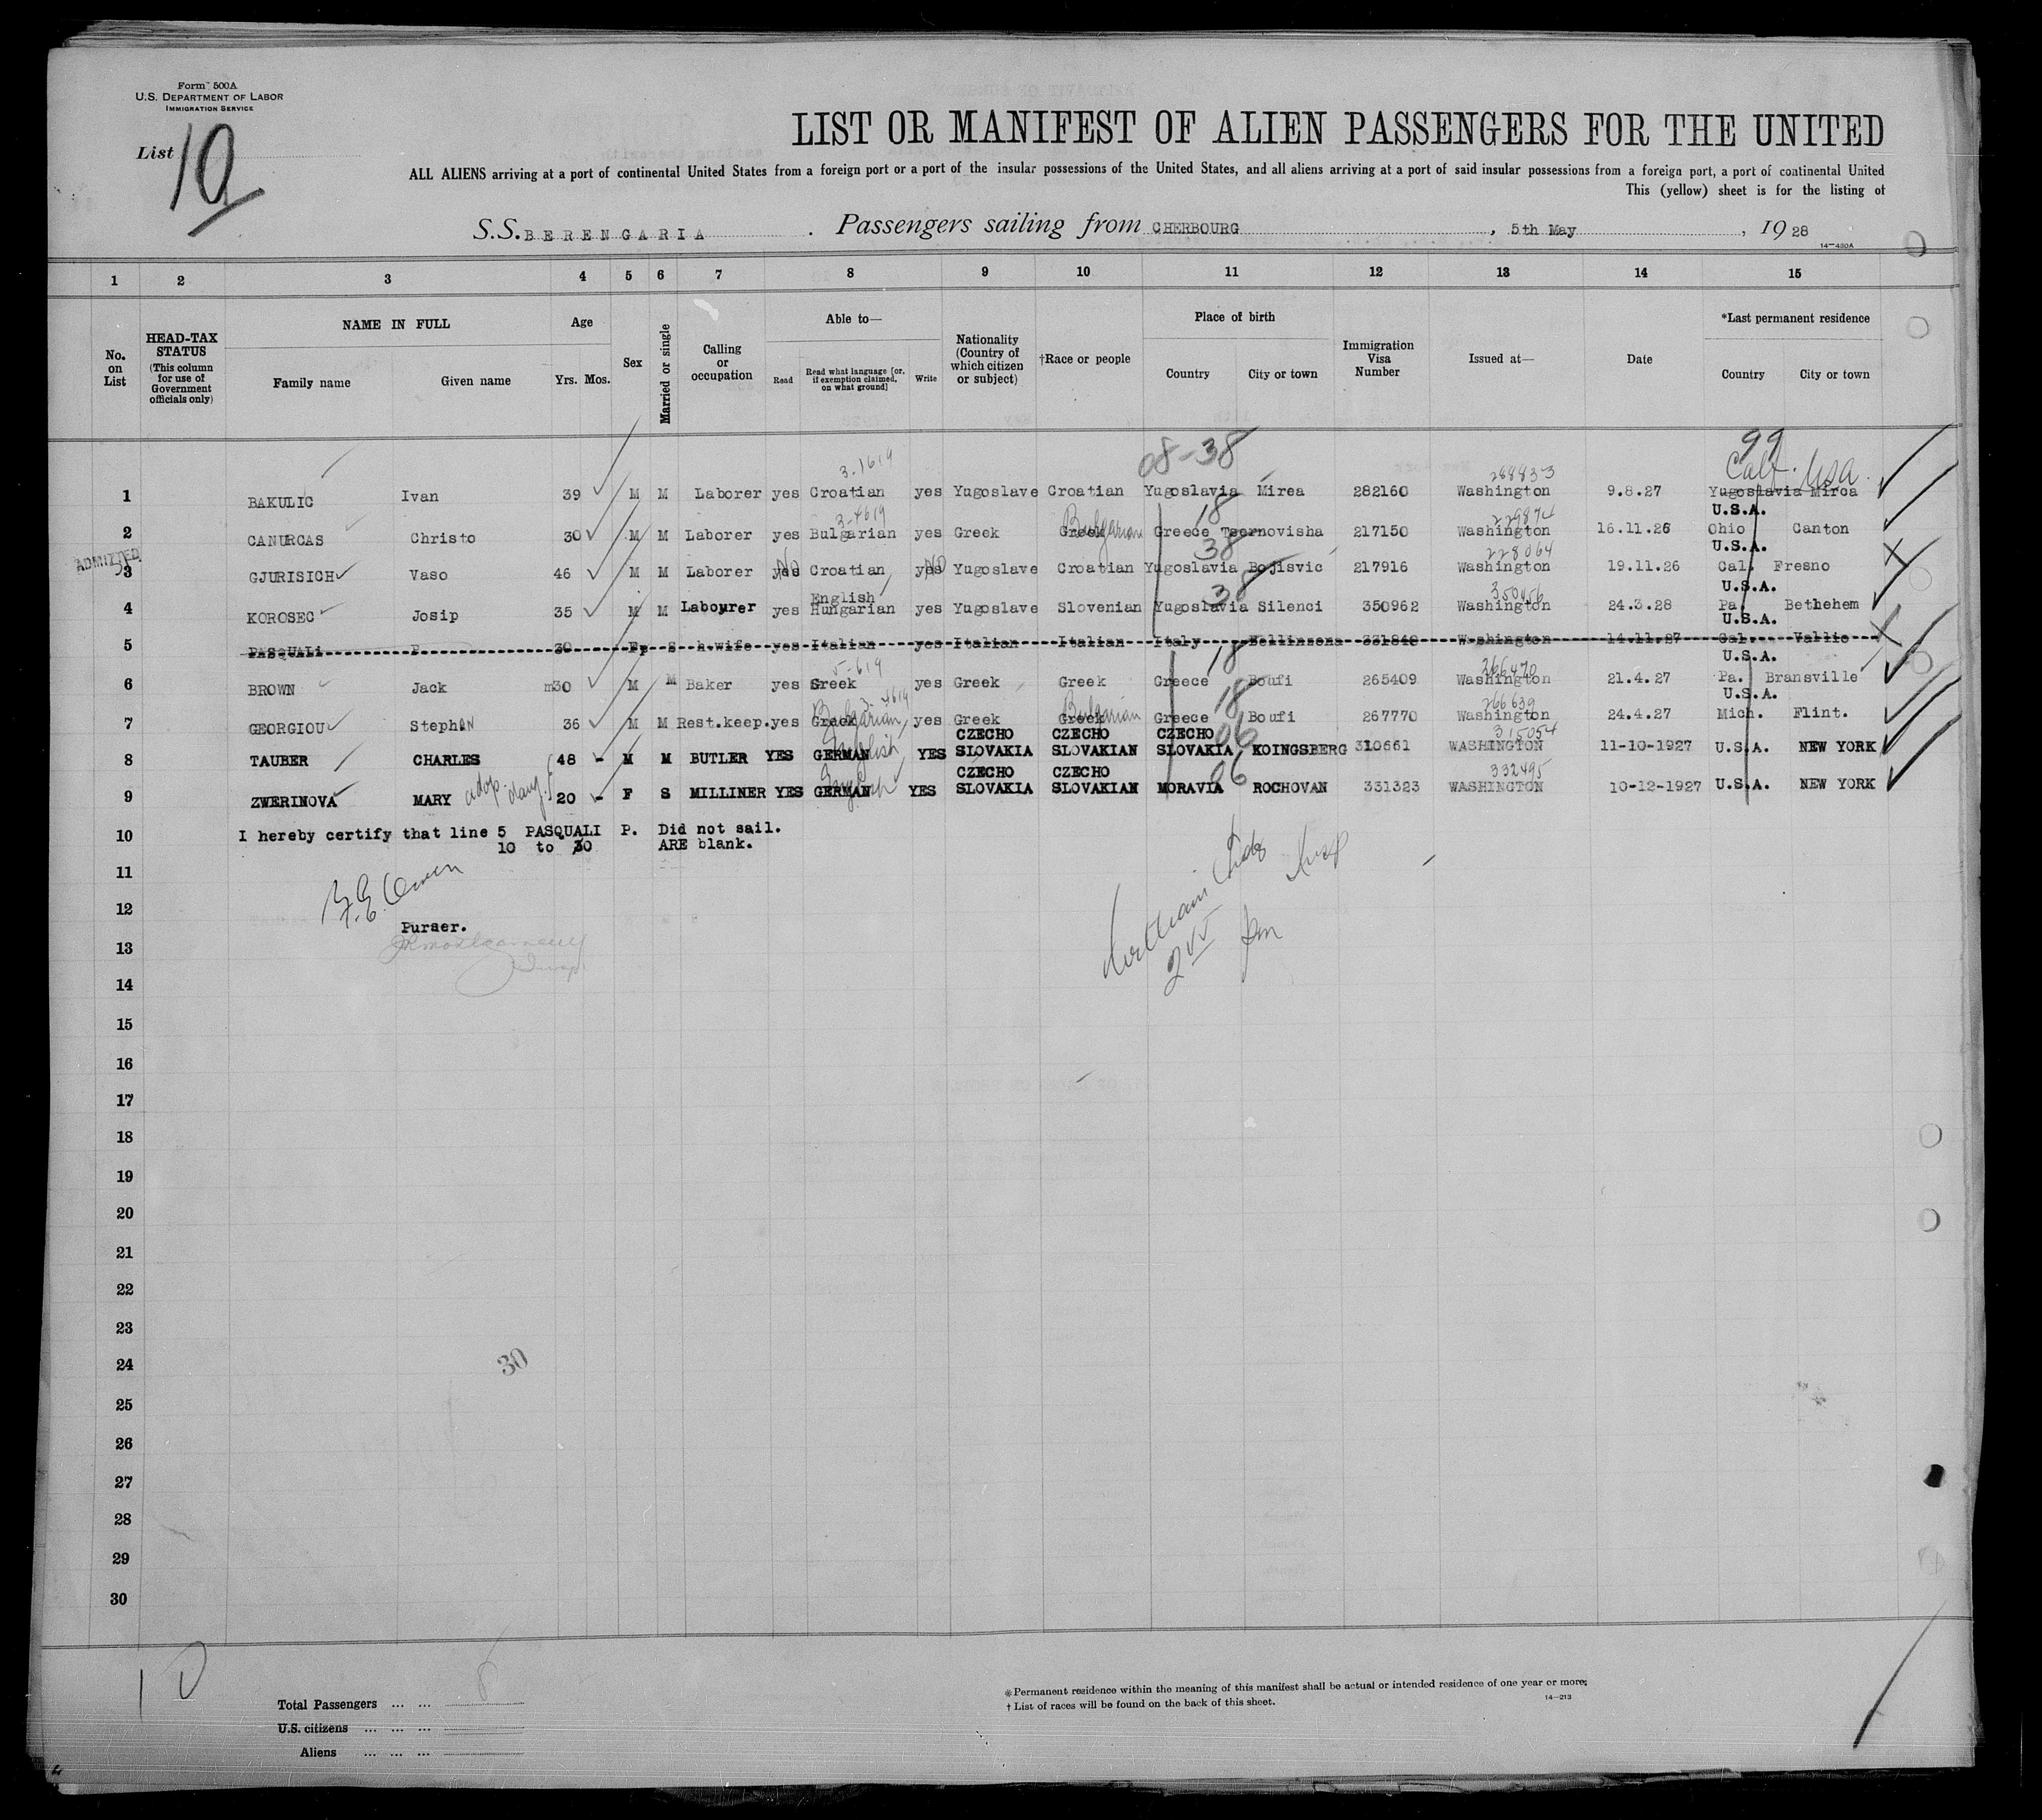 Form 500A
U.S. DEPARTMENT OF LABOR
IMMIGRATION SERVICE
List 10
LIST OR MANIFEST OF ALIEN PASSENGERS FOR THE UNITED
ALL ALIENS arriving at a port of continental United States from a foreign port or a port of the insular possessions of the United States, and all aliens arriving at a port of said insular possessions from a foreign port, a port of continental United
This (yellow) sheet is for the listing of
S.S. BERENGARIA . Passengers sailing from CHERBOURG , 5th May , 1928
14—430A
1 2 3 4 5 6 7 8 9 10 11 12 13 14 15
No. on List
HEAD-TAX STATUS (This column for use of Government officials only)
NAME IN FULL
Family name Given name
Age
Yrs. Mos.
Sex
Married or single
Calling or occupation
Able to—
Read
Read what language [or, if exemption claimed, on what ground]
Write
Nationality (Country of which citizen or subject)
†Race or people
Place of birth
Country City or town
Immigration Visa Number
Issued at—
Date
*Last permanent residence
Country City or town
08-38 99
3-1619 288833 Calf. USA
1 BAKULIC Ivan 39 M M Laborer yes Croatian yes Yugoslave Croatian Yugoslavia Mirca 282160 Washington 9.8.27 Yugoslavia Mirca
3-4619 Bulgarian 18 229874 U.S.A.
2 CANURCAS Christo 30 M M Laborer yes Bulgarian yes Greek Greek Greece Tsernovisha 217150 Washington 16.11.26 Ohio Canton
ADMITTED No No 38 228064 U.S.A.
3 GJURISICH Vaso 46 M M Laborer yes Croatian yes Yugoslave Croatian Yugoslavia Bojisvic 217916 Washington 19.11.26 Cal. Fresno
English 38 350456 U.S.A.
4 KOROSEC Josip 35 M M Labourer yes Hungarian yes Yugoslave Slovenian Yugoslavia Silenci 350962 Washington 24.3.28 Pa. Bethehem
U.S.A.
5 PASQUALI P 30 F S h.wife yes Italian yes Italian Italian Italy Bellinzona 331840 Washington 14.11.27 Cal. Vallie
5-619 18 266420 U.S.A.
6 BROWN Jack m30 M M Baker yes Greek yes Greek Greek Greece Boufi 265409 Washington 21.4.27 Pa. Bransville
Bulgarian 3-4619 Bulgarian 18 266639 U.S.A.
7 GEORGIOU Stephan 36 M M Rest.keep. yes Greek yes Greek Greek Greece Boufi 267770 Washington 24.4.27 Mich. Flint.
English CZECHO CZECHO CZECHO 06 315054
8 TAUBER CHARLES 48 - M M BUTLER YES GERMAN YES SLOVAKIA SLOVAKIAN SLOVAKIA KOINGSBERG 310661 WASHINGTON 11-10-1927 U.S.A. NEW YORK
English CZECHO CZECHO 06 332495
9 ZWERINOVA MARY adop daug. 20 - F S MILLINER YES GERMAN YES SLOVAKIA SLOVAKIAN MORAVIA ROCHOVAN 331323 WASHINGTON 10-12-1927 U.S.A. NEW YORK
10 I hereby certify that line 5 PASQUALI P. Did not sail.
10 to 30 ARE blank.
11
12
Purser.
13
14
15
16
17
18
19
20
21
22
23
24
30
25
26
27
28
29
30
10
Total Passengers ... ... 8
U.S. citizens ... ... ...
Aliens ... ... ...
*Permanent residence within the meaning of this manifest shall be actual or intended residence of one year or more.
† List of races will be found on the back of this sheet.
14—213